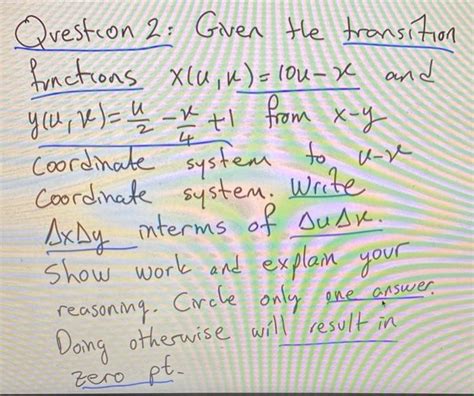 Question 2: Given the transition
functions x(u,v) = 10u - v and
y(u,v) = u/2 - v/4 + 1 from x-y
coordinate system to u-v
coordinate system. Write
ΔxΔy interms of ΔuΔv.
Show work and explain your
reasoning. Circle only one answer.
Doing otherwise will result in
zero pt.